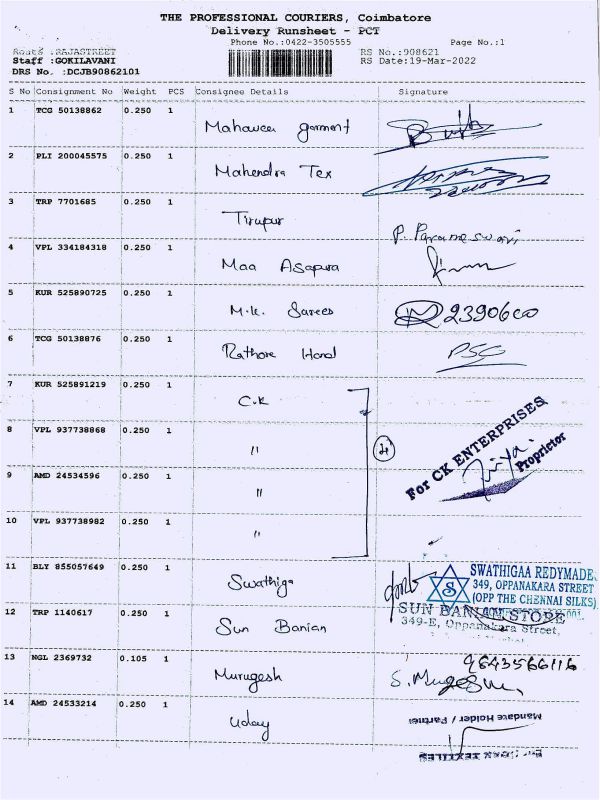 THE PROFESSIONAL COURIERS, Coimbatore
Delivery Runsheet - PCT
Phone No.:0422-3505555 Page No.:1
Route :RAJASTREET RS No.:908621
Staff :GOKILAVANI RS Date:19-Mar-2022
DRS No. :DCJB90862101
S No Consignment No Weight PCS Consignee Details Signature
1 TCG 50138862 0.250 1 Mahaveer garment
2 PLI 200045575 0.250 1 Mahendra Tex
3 TRP 7701685 0.250 1 Tirupur P. Parameswari
4 VPL 334184318 0.250 1 Maa Asapura
5 KUR 525890725 0.250 1 M.K. Sarees 2390600
6 TCG 50138876 0.250 1 Rathore Hand PSG
7 KUR 525891219 0.250 1 C.K
8 VPL 937738868 0.250 1 "
4
For CK ENTERPRISES
Proprietor
9 AMD 24534596 0.250 1 "
10 VPL 937738982 0.250 1 "
11 BLY 855057649 0.250 1 Swathiga
SWATHIGAA REDYMADE
349, OPPANAKARA STREET
(OPP THE CHENNAI SILKS)
12 TRP 1140617 0.250 1 Sun Banian
SUN BANIAN STORE
349-E, Oppanakara Street,
13 NGL 2369732 0.105 1 Murugesh 9843566116
S. Mugesh
14 AMD 24533214 0.250 1 Uday
Mandate Holder / Partner
TEXTILES